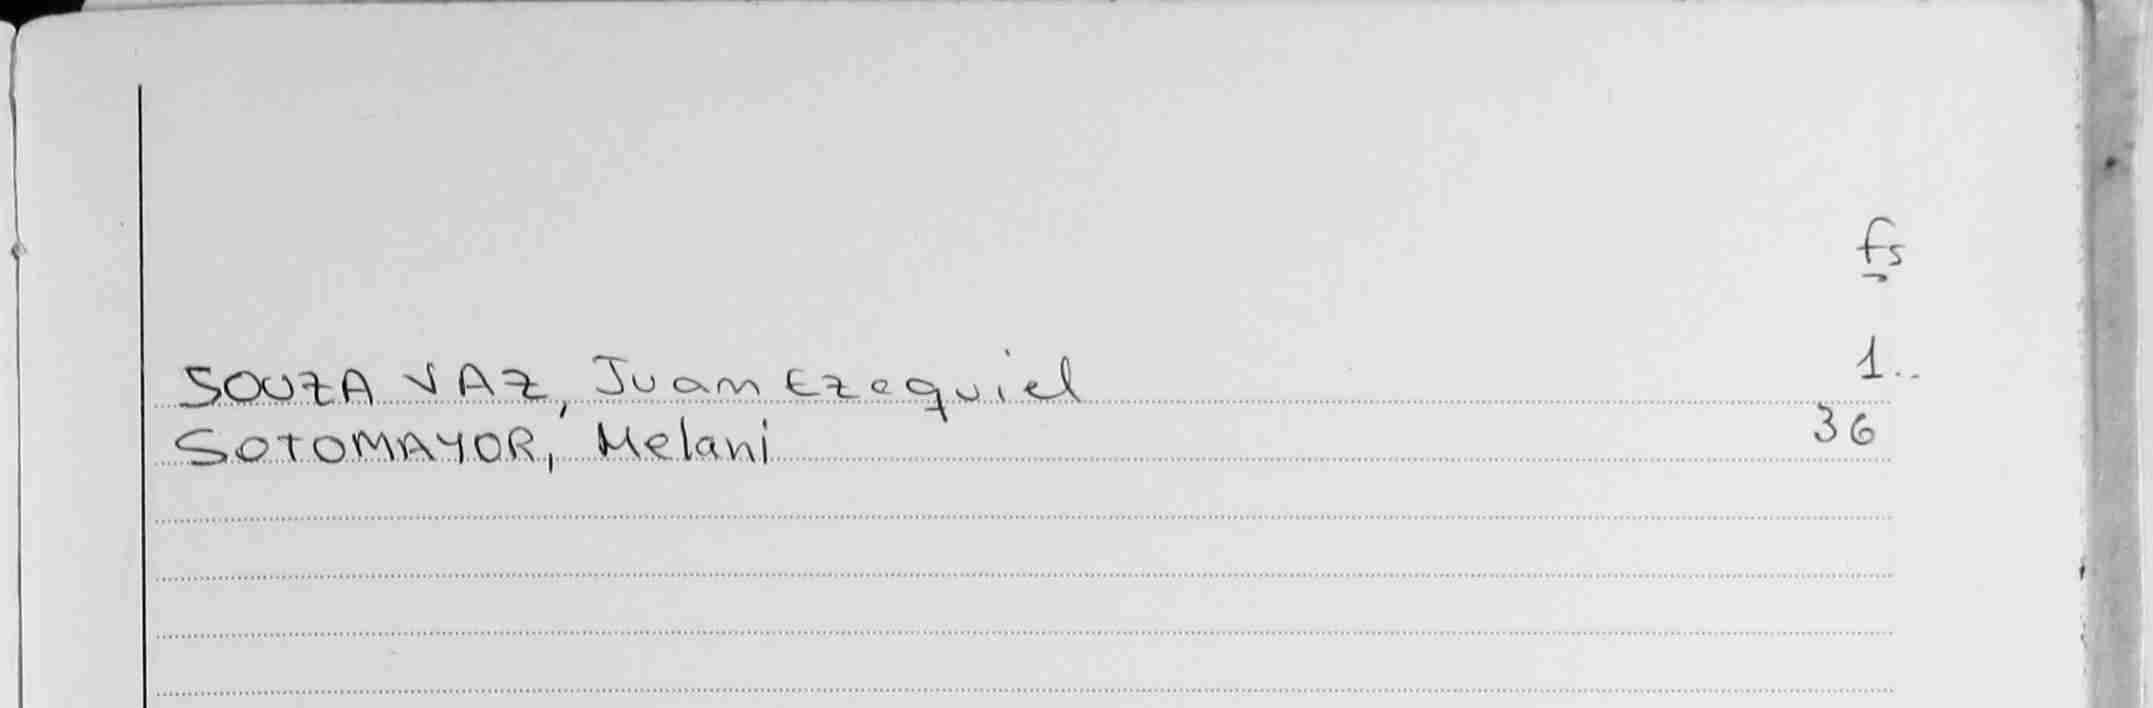 fs
SOUZA VAZ, Juan Ezequiel 1..
SOTOMAYOR, Melani 36